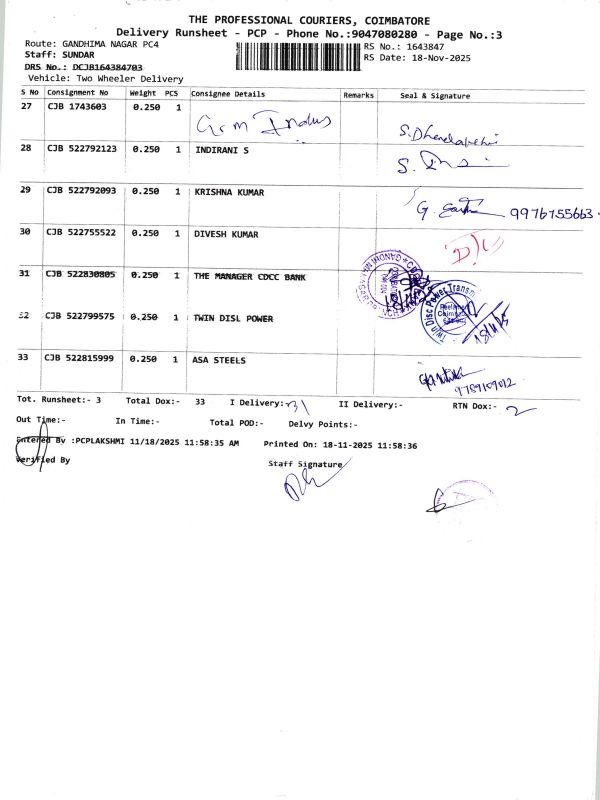 THE PROFESSIONAL COURIERS, COIMBATORE
Delivery Runsheet - PCP - Phone No.:9047080280 - Page No.:3
Route: GANDHIMA NAGAR PC4
RS No.: 1643847
Staff: SUNDAR
RS Date: 18-Nov-2025
DRS No.: DCJB164384703
Vehicle: Two Wheeler Delivery
S No Consignment No Weight PCS Consignee Details Remarks Seal & Signature
27 CJB 1743603 0.250 1
28 CJB 522792123 0.250 1 INDIRANI S
29 CJB 522792093 0.250 1 KRISHNA KUMAR
9976755663
30 CJB 522755522 0.250 1 DIVESH KUMAR
D/C
31 CJB 522830805 0.250 1 THE MANAGER CDCC BANK
32 CJB 522799575 0.250 1 TWIN DISL POWER
Twin Disc Power Transm
33 CJB 522815999 0.250 1 ASA STEELS
9789159012
Tot. Runsheet:- 3 Total Dox:- 33 I Delivery:- 31 II Delivery:- RTN Dox:- 2
Out Time:- In Time:- Total POD:- Delvy Points:-
Entered By :PCPLAKSHMI 11/18/2025 11:58:35 AM Printed On: 18-11-2025 11:58:36
Verified By
Staff Signature